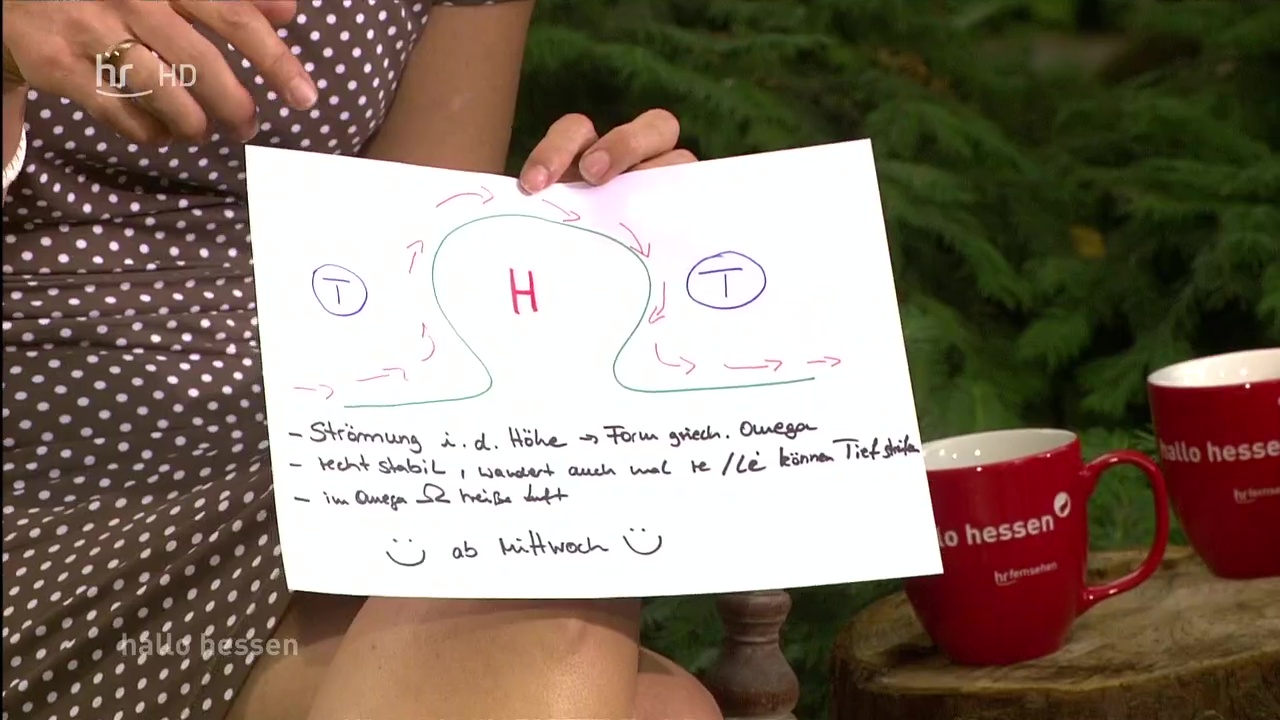 hr HD
T H T
- Strömung i. d. Höhe → Form griech. Omega
- recht stabil, wandert auch mal re / Li können Tief streifen
- im Omega Ω heiße Luft
ab Mittwoch
hallo hessen
hr fernsehen
lo hessen
hr fernsehen
hallo hessen